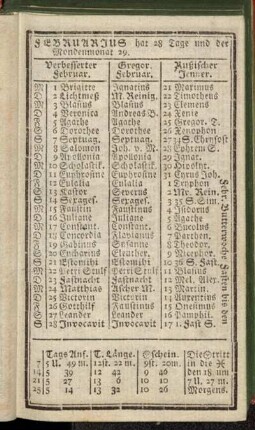 FEBRUARIUS hat 28 Tage und der
Mondenmonat 29.
Verbesserter Gregor. Rußischer
Februar. Februar. Jenner.
M 1 Brigitte Ignatius 21 Maximus
D 2 Lichtmeß M. Reinig. 22 Timotheus
M 3 Blasius Blasius 23 Clemens
D 4 Veronica Andreas B. 24 Xenie
F 5 Agathe Agathe 25 Gregor. T.
S 6 Dorothee Dorothee 26 Xenophon
S 7 Septuag. Septuag. 27
M 8 Salomon Joh. v. M. 28 Ephrem S.
D 9 Apollonia Apolonia 29 Ignat.
M 10 Scholastik. Scholastik. 30 Hipolit.
D 11 Euphrosine Euphrosine 31 Cyrus Joh.
F 12 Eulalia Eulalia 1 Tryphon
S 13 Kastor Severus 2 Mr. Rein.
S 14 Sexages. Sexages. 3 35 S. Sim.
M 15 Faustin Faustinus 4 Isidorus
D 16 Juliane Juliane 5 Agathe
M 17 Constant. Constant. 6 Bucolus
D 18 Concordia Flavianus 7 Parthen.
F 19 Gabinus Susanne 8 Theodor.
S 20 Eucharius Eleuther. 9 Nicephor.
S 21 Estomihi Estomihi 10 36 S. Fast.
M 22 Petri Stulf Petri Stulf 11 Blasius
D 23 Fastnacht Fastnacht 12 Mel. Bier.
M 24 Matthias Ascher M. 13 Martin.
D 25 Victorin Victorin 14 Auxentius
F 26 Gotthilf Faustinus 15 Onesimus
S 27 Leander Leander 16 Pamphil.
S 28 Invocavit Invocavit 17 1. Fast S.
Tags Anf. T. Länge. Die
7 5 U. 49 m. 12st. 22 m. 9st. 20m. in die
14 5 39 12 42 9 46 den 18. um
21 5 27 13 6 10 10 7 U. 27 m.
25 5 14 13 32 10 26 Morgens.